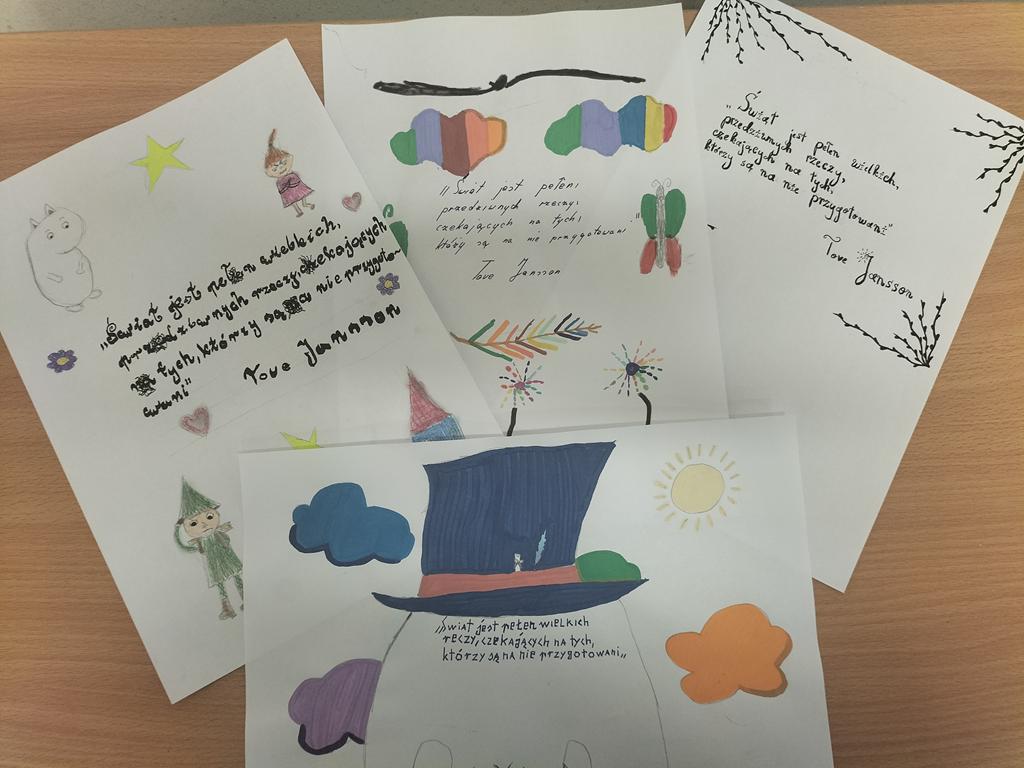 „Świat jest pełen wielkich,
przedziwnych rzeczy czekających
na tych, którzy są na nie przygoto-
wani"
Tove Jansson
„Świat jest pełen
przedziwnych rzeczy,
czekających na tych,
którzy są na nie przygotowani"
Tove Jansson
„Świat jest pełen wielkich,
przedziwnych rzeczy,
czekających na tych,
którzy są na nie przygotowani"
Tove Jansson
„Świat jest pełen wielkich
rzeczy, czekających na tych,
którzy są na nie przygotowani„